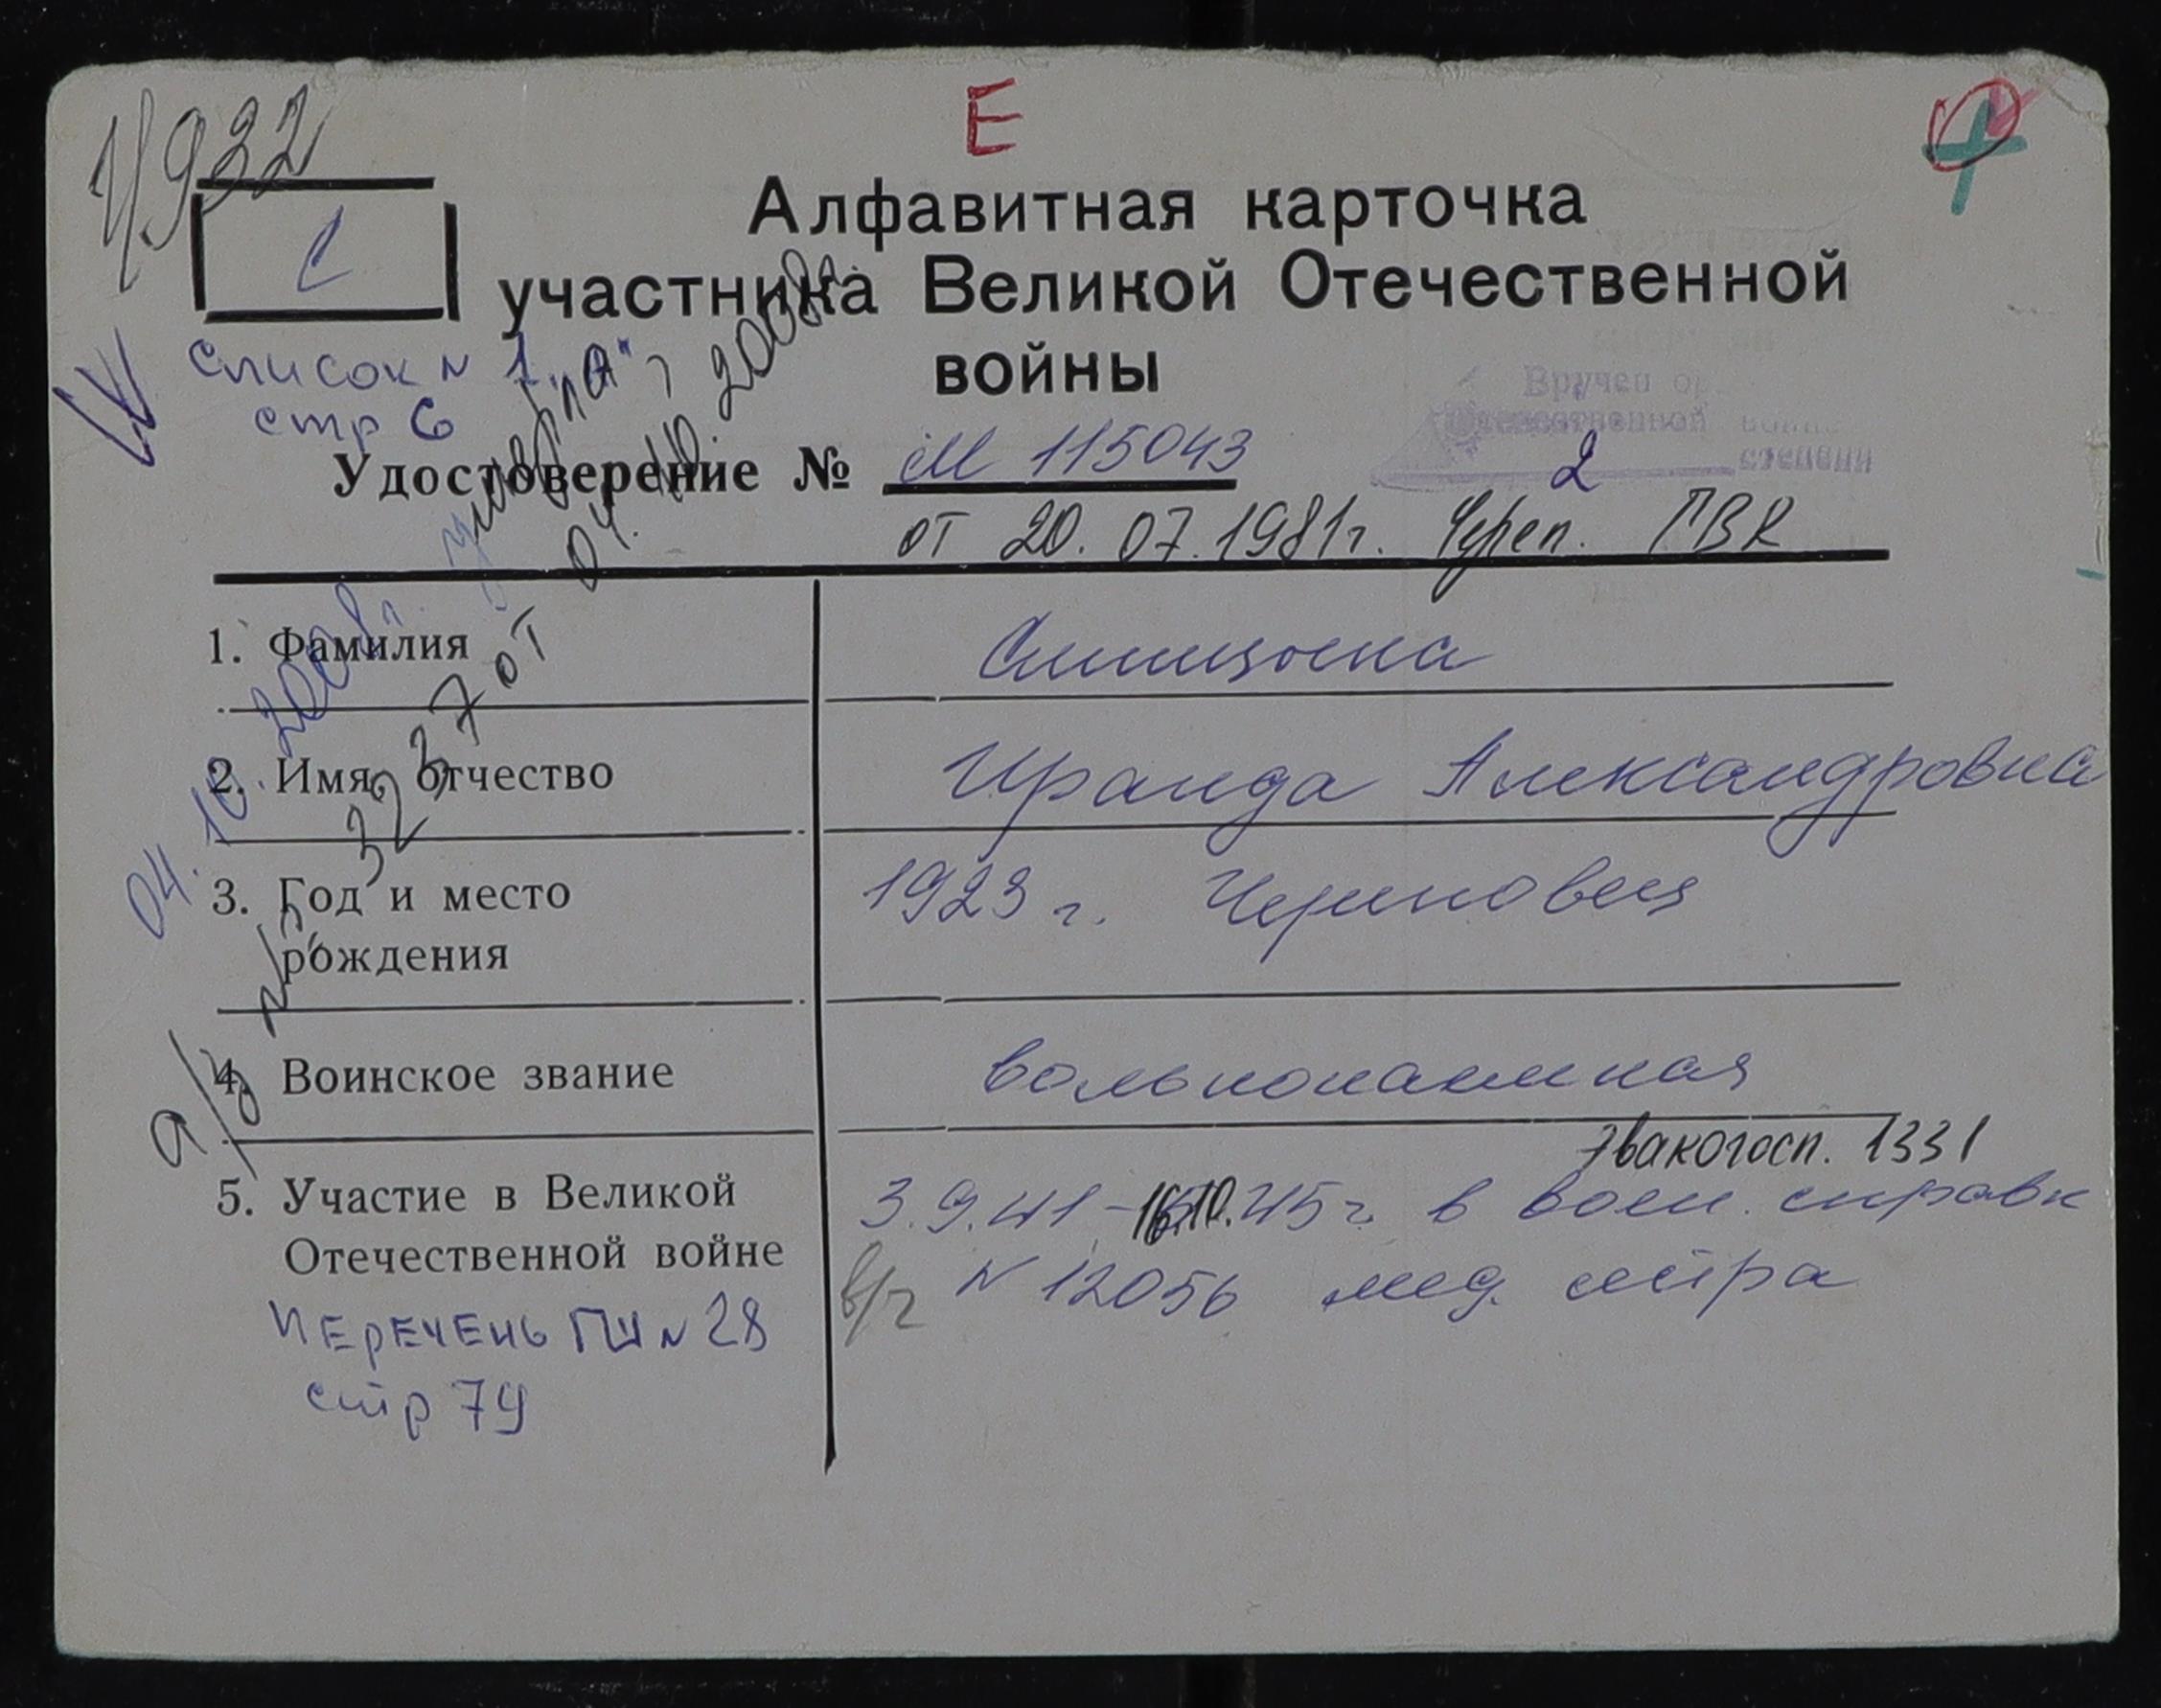 Е
4922
Алфавитная карточка
С
участника Великой Отечественной
войны
Список N 1
стр 6
Вручен ор
Отечественной войны
2 степени
Удостоверение № М 115043
от 20.07.1981г. Череп. ГВК
умерла
04.10.2008г.
а/з N 3237 от 04.10.2008г.
1. Фамилия
Синицына
2. Имя, отчество
Ираида Александровна
3. Год и место
рождения
1923 г. Череповец
4. Воинское звание
вольнонаемная
5. Участие в Великой
Отечественной войне
Эвакогосп. 1331
3.9.41 - 16.10.45г. в воен. справк
в/ч N 12056 мед. сестра
ПЕРЕЧЕНЬ ГШ N 28
стр 79